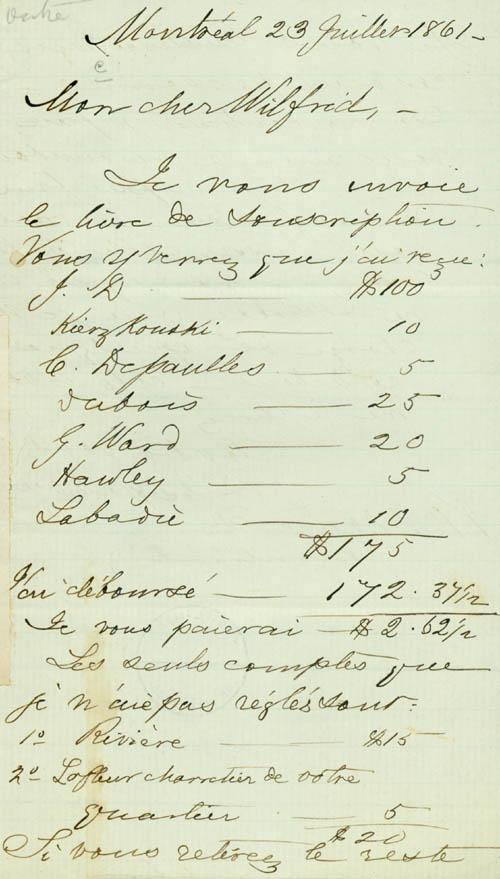 Montréal 23 Juillet 1861 -
Mon cher Wilfrid, -
Je vous envoie
le livre de souscription.
Vous y verrez que j'ai reçu:
J. D — $100
Kierzkouski — 10
C. Depaulles — 5
Dubois — 25
G. Ward — 20
Hawley — 5
Labadie — 10
$175
J'ai déboursé — 172.37½
Je vous paierai — $2.62½
Les seuls comptes que
je n'aie pas réglés sont:
1º Rivière — $15
2º Lafleur charretier de votre
quartier — 5
$20
Si vous retirez le reste